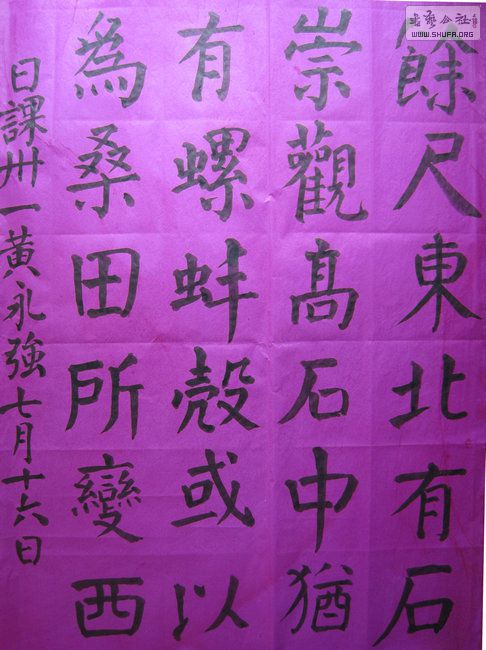 餘尺東北有石
崇觀高石中猶
有螺蚌殼或以
為桑田所變西
日課卅一黃永強七月十六日
書藝公社
WWW.SHUFA.ORG